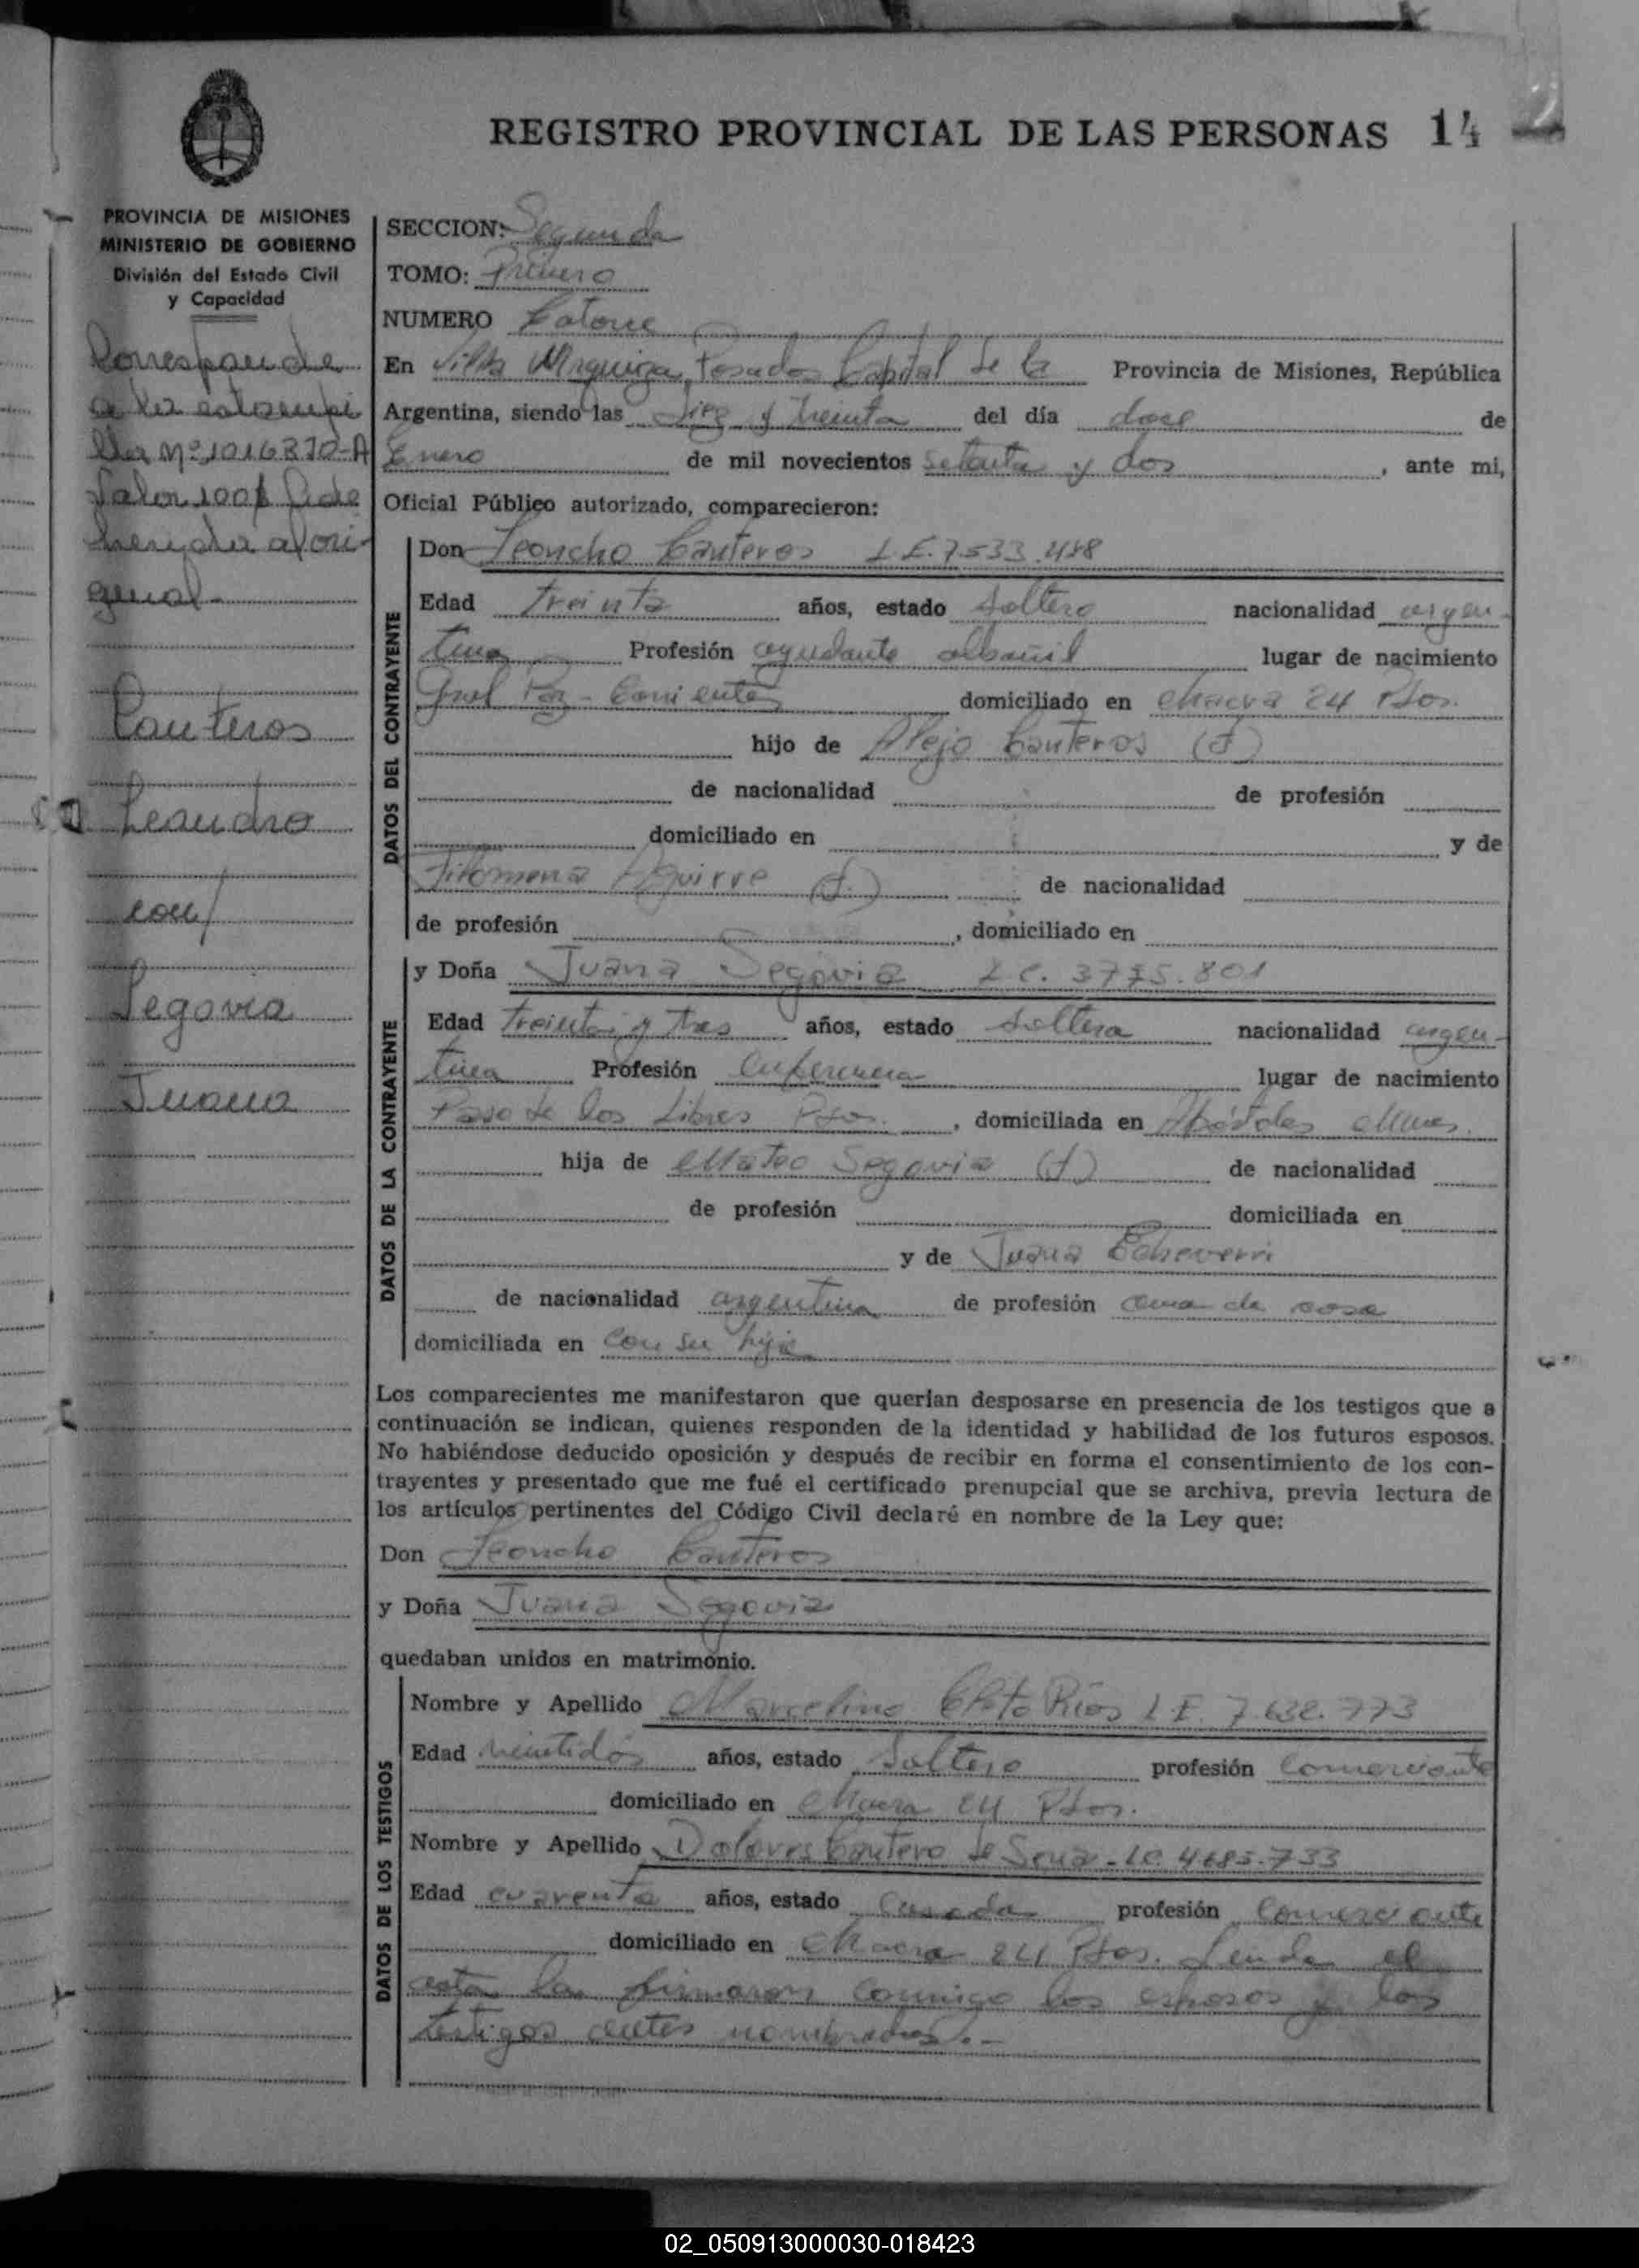 REGISTRO PROVINCIAL DE LAS PERSONAS 14
PROVINCIA DE MISIONES
MINISTERIO DE GOBIERNO
División del Estado Civil
y Capacidad
Corresponde
a la estampi
lla Nº 1016370-A
Valor 100$ ade
herida al ori-
ginal
Canteros
Leandro
con/
Segovia
Juana
SECCION: Segunda
TOMO: Primero
NUMERO Catorce
En Villa Urquiza, Posadas Capital de la Provincia de Misiones, República
Argentina, siendo las diez y treinta del día doce de
Enero de mil novecientos setenta y dos, ante mi,
Oficial Público autorizado, comparecieron:
DATOS DEL CONTRAYENTE
Don Leoncho Canteros L.E. 7.533.488
Edad treinta años, estado soltero nacionalidad argen-
tina Profesión ayudante albañil lugar de nacimiento
Gral Paz - Corrientes domiciliado en Chacra 24 Pdas.
hijo de Alejo Canteros (f)
de nacionalidad de profesión
domiciliado en y de
Filomena Aguirre (f.) de nacionalidad
de profesión , domiciliado en
DATOS DE LA CONTRAYENTE
y Doña Juana Segovia L.C. 3775.801
Edad treinta y tres años, estado soltera nacionalidad argen-
tina Profesión enfermera lugar de nacimiento
Paso de los Libres , domiciliada en Apóstoles Mnes.
hija de Mateo Segovia (f) de nacionalidad
de profesión domiciliada en
y de Juana Echeverri
de nacionalidad argentina de profesión ama de casa
domiciliada en con su hija
Los comparecientes me manifestaron que querían desposarse en presencia de los testigos que a
continuación se indican, quienes responden de la identidad y habilidad de los futuros esposos.
No habiéndose deducido oposición y después de recibir en forma el consentimiento de los con-
trayentes y presentado que me fué el certificado prenupcial que se archiva, previa lectura de
los artículos pertinentes del Código Civil declaré en nombre de la Ley que:
Don Leoncho Canteros
y Doña Juana Segovia
quedaban unidos en matrimonio.
DATOS DE LOS TESTIGOS
Nombre y Apellido Marcelino Ríos L.E. 7.632.773
Edad veintidós años, estado Soltero profesión Comerciante
domiciliado en Chacra 24 Pdas.
Nombre y Apellido Dolores Cantero de Sena - LC. 4685.733
Edad cuarenta años, estado Casada profesión Comerciante
domiciliado en Chacra 24 Pdas. Leida el
acta la firmaron conmigo los esposos y los
testigos antes nombrados.-
02_050913000030-018423